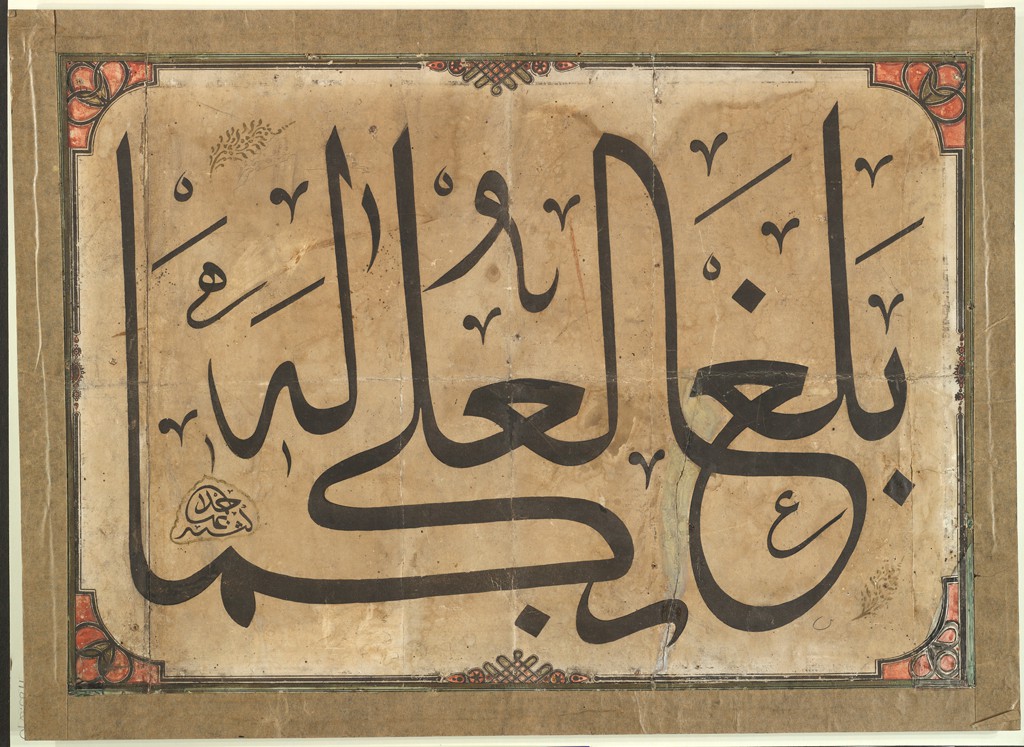 بلغ العلى
بكماله